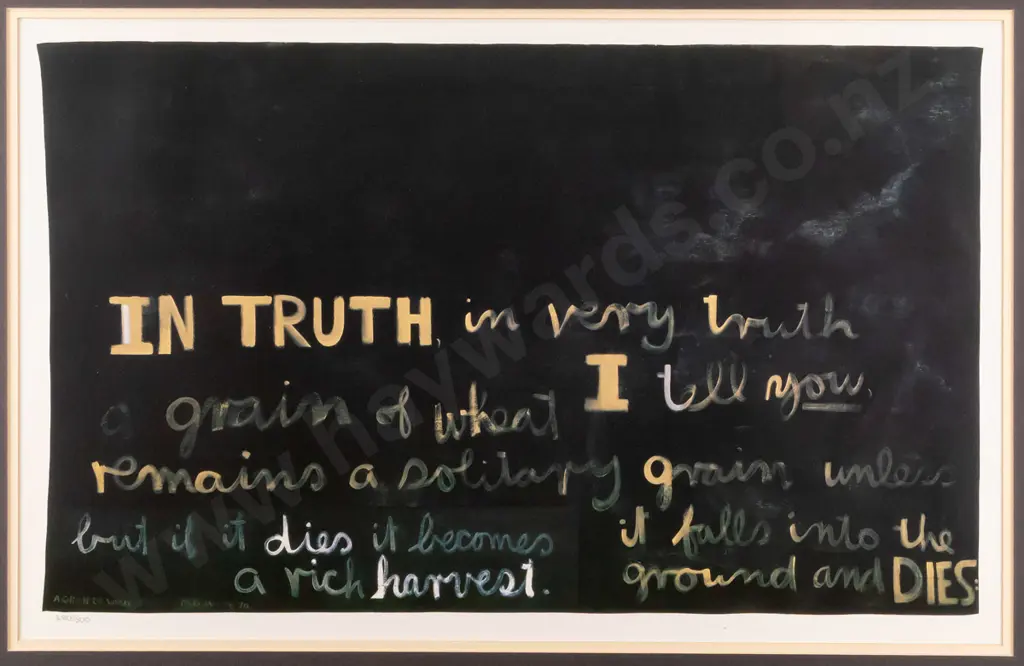 IN TRUTH, in very truth
I tell you,
a grain of wheat
remains a solitary grain unless
it falls into the
ground and DIES:
but if it dies it becomes
a rich harvest.
www.haywards.co.nz